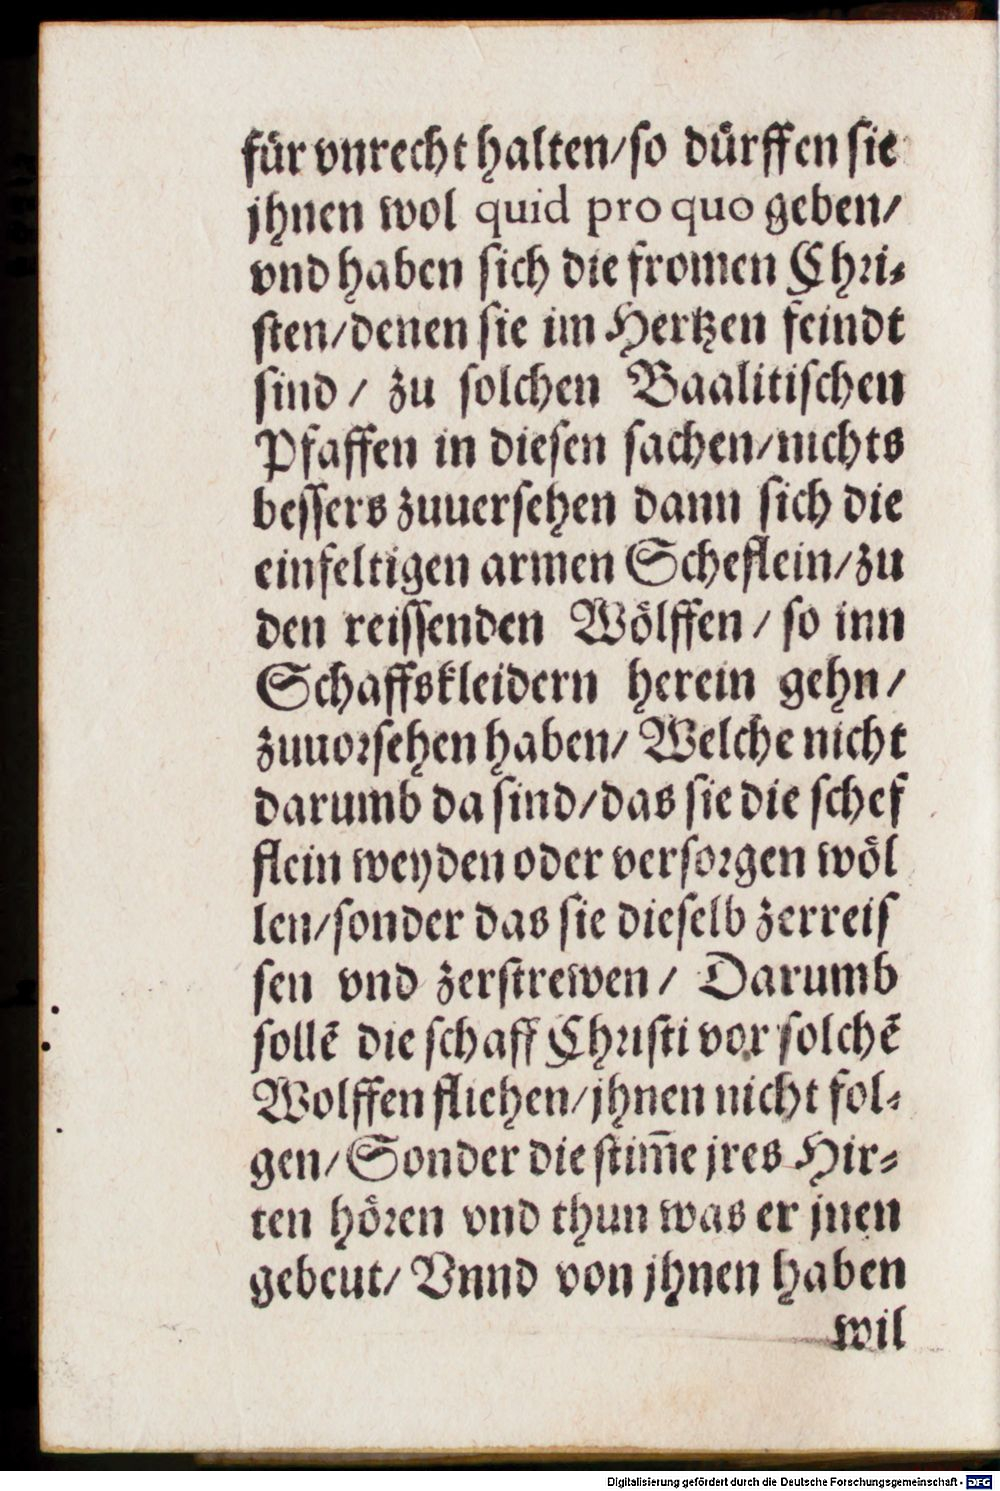 für vnrecht halten/so dürffen sie
jhnen wol quid pro quo geben/
vnd haben sich die fromen Chri⸗
sten/denen sie im Hertzen feindt
sind/ zu solchen Baalitischen
Pfaffen in diesen sachen/nichts
bessers zuuersehen dann sich die
einfeltigen armen Scheflein/zu
den reissenden Wölffen/ so inn
Schaffskleidern herein gehn/
zuuorsehen haben/ Welche nicht
darumb da sind/das sie die schef
flein weyden oder versorgen wöl
len/sonder das sie dieselb zerreis
sen vnd zerstrewen/ Darumb
sollẽ die schaff Christi vor solchẽ
Wolffen fliehen/jhnen nicht fol⸗
gen/Sonder die stim̃e jres Hir⸗
ten hören vnd thun was er jnen
gebeut/ Vnnd von jhnen haben
wil
Digitalisierung gefördert durch die Deutsche Forschungsgemeinschaft - DFG